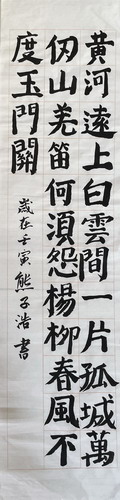 黄河遠上白雲間一片孤城萬
仞山羌笛何須怨楊柳春風不
度玉門關
歲在壬寅熊子浩書